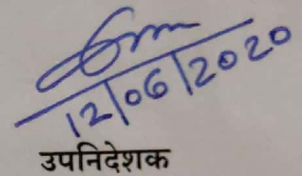 12/06/2020
उपनिदेशक